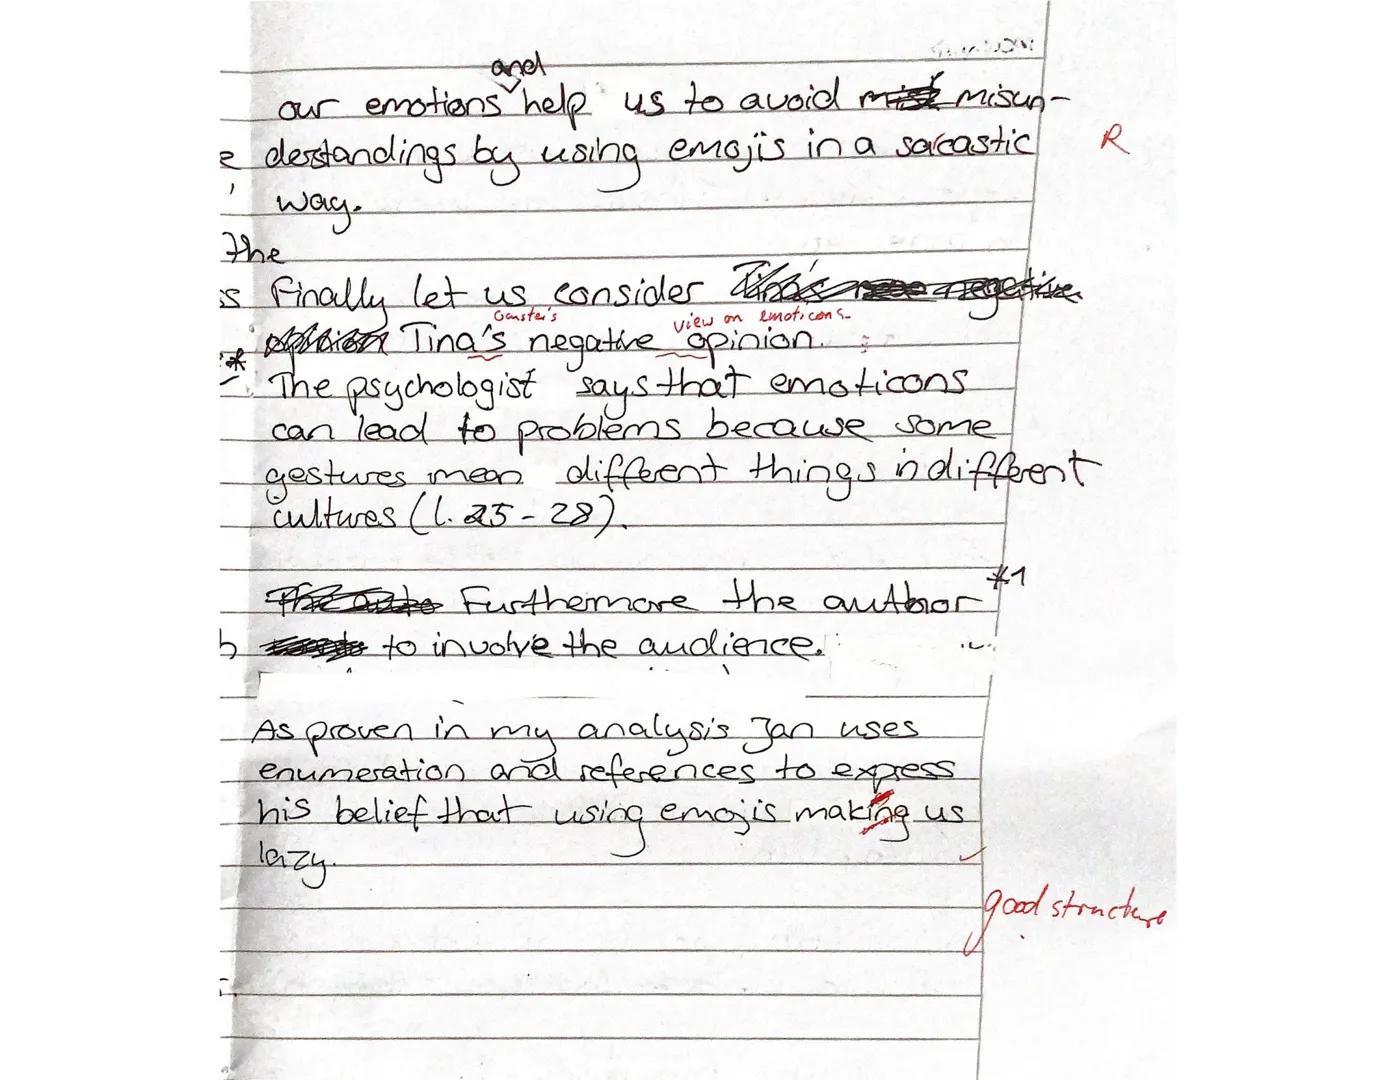 and
our emotions help us to avoid misun-
derstandings by using emojis in a sarcastic R
e
way.
the
ss Finally let us consider Tina's negative
view on emoticons
opinion Tina's negative opinion.
*
The psychologist says that emoticons
can lead to problems because some
gestures mean different things in different
cultures (l. 25-28).
*1
Furthermore the author
to involve the audience.
As proven in my analysis Jan uses
enumeration and references to express
his belief that using emojis making us
lazy.
good structure